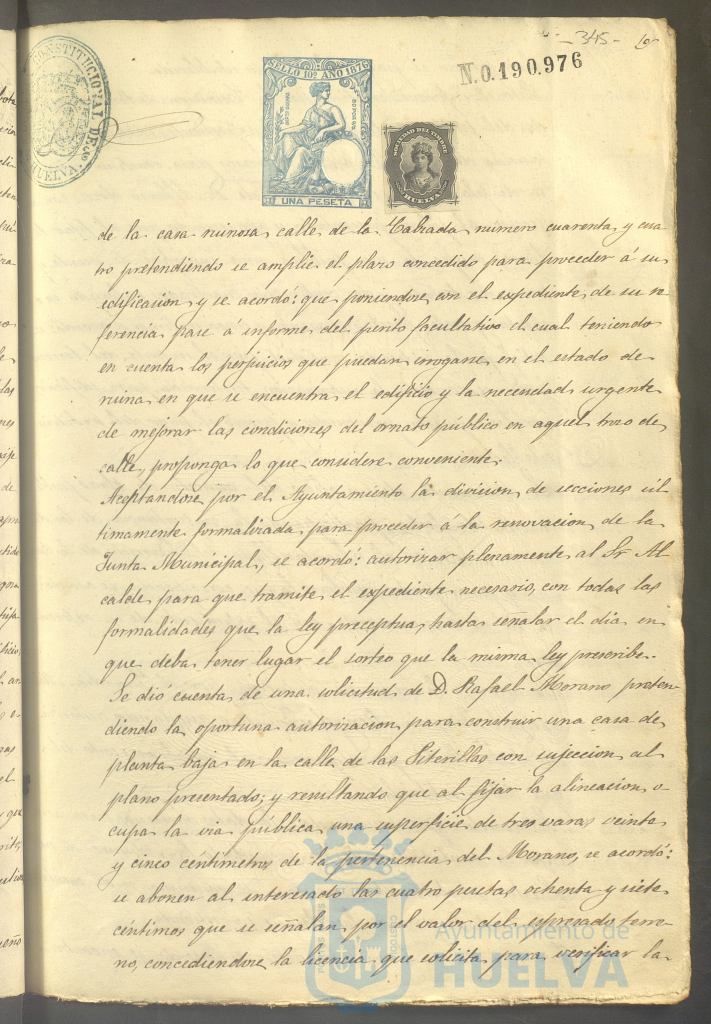 -345-
N.0.190.976
CONSTITUCIONAL DE
HUELVA
SELLO 10º AÑO 1876
UNA PESETA
SOCIEDAD DEL TIMBRE
HUELVA
de la casa ruinosa, calle de la Calzada número cuarenta y cua
tro pretendiendo se amplie el plazo concedido para proceder á su
edificacion y se acordó: que poniendose con el expediente de su re
ferencia pase á informe del perito facultativo el cual teniendo
en cuenta los perjuicios que puedan irrogarse en el estado de
ruina en que se encuentra el edificio y la necesidad urgente
de mejorar las condiciones del ornato público en aquel trozo de
calle, proponga lo que considere conveniente.
Aceptandose por el Ayuntamiento la division de secciones úl
timamente formalizada para proceder á la renovacion de la
Junta Municipal, se acordó: autorizar plenamente al Sr Al
calde para que tramite el expediente necesario, con todas las
formalidades que la ley preceptua, hasta señalar el dia en
que deba tener lugar el sorteo que la misma ley prescribe.
Se dió cuenta de una solicitud de D. Rafael Morano preten
diendo la oportuna autorizacion para construir una casa de
planta baja en la calle de las Siterillas con sujecion al
plano presentado; y resultando que al fijar la alineacion o
cupa la via pública una superficie de tres varas veinte
y cinco céntimetros de la pertinencia del Morano, se acordó:
se abonen al interesado las cuatro pesetas ochenta y siete
céntimos que se señalan por el valor del espresado terre
no, concediendose la licencia que solicita para verificar la
Ayuntamiento de
HUELVA